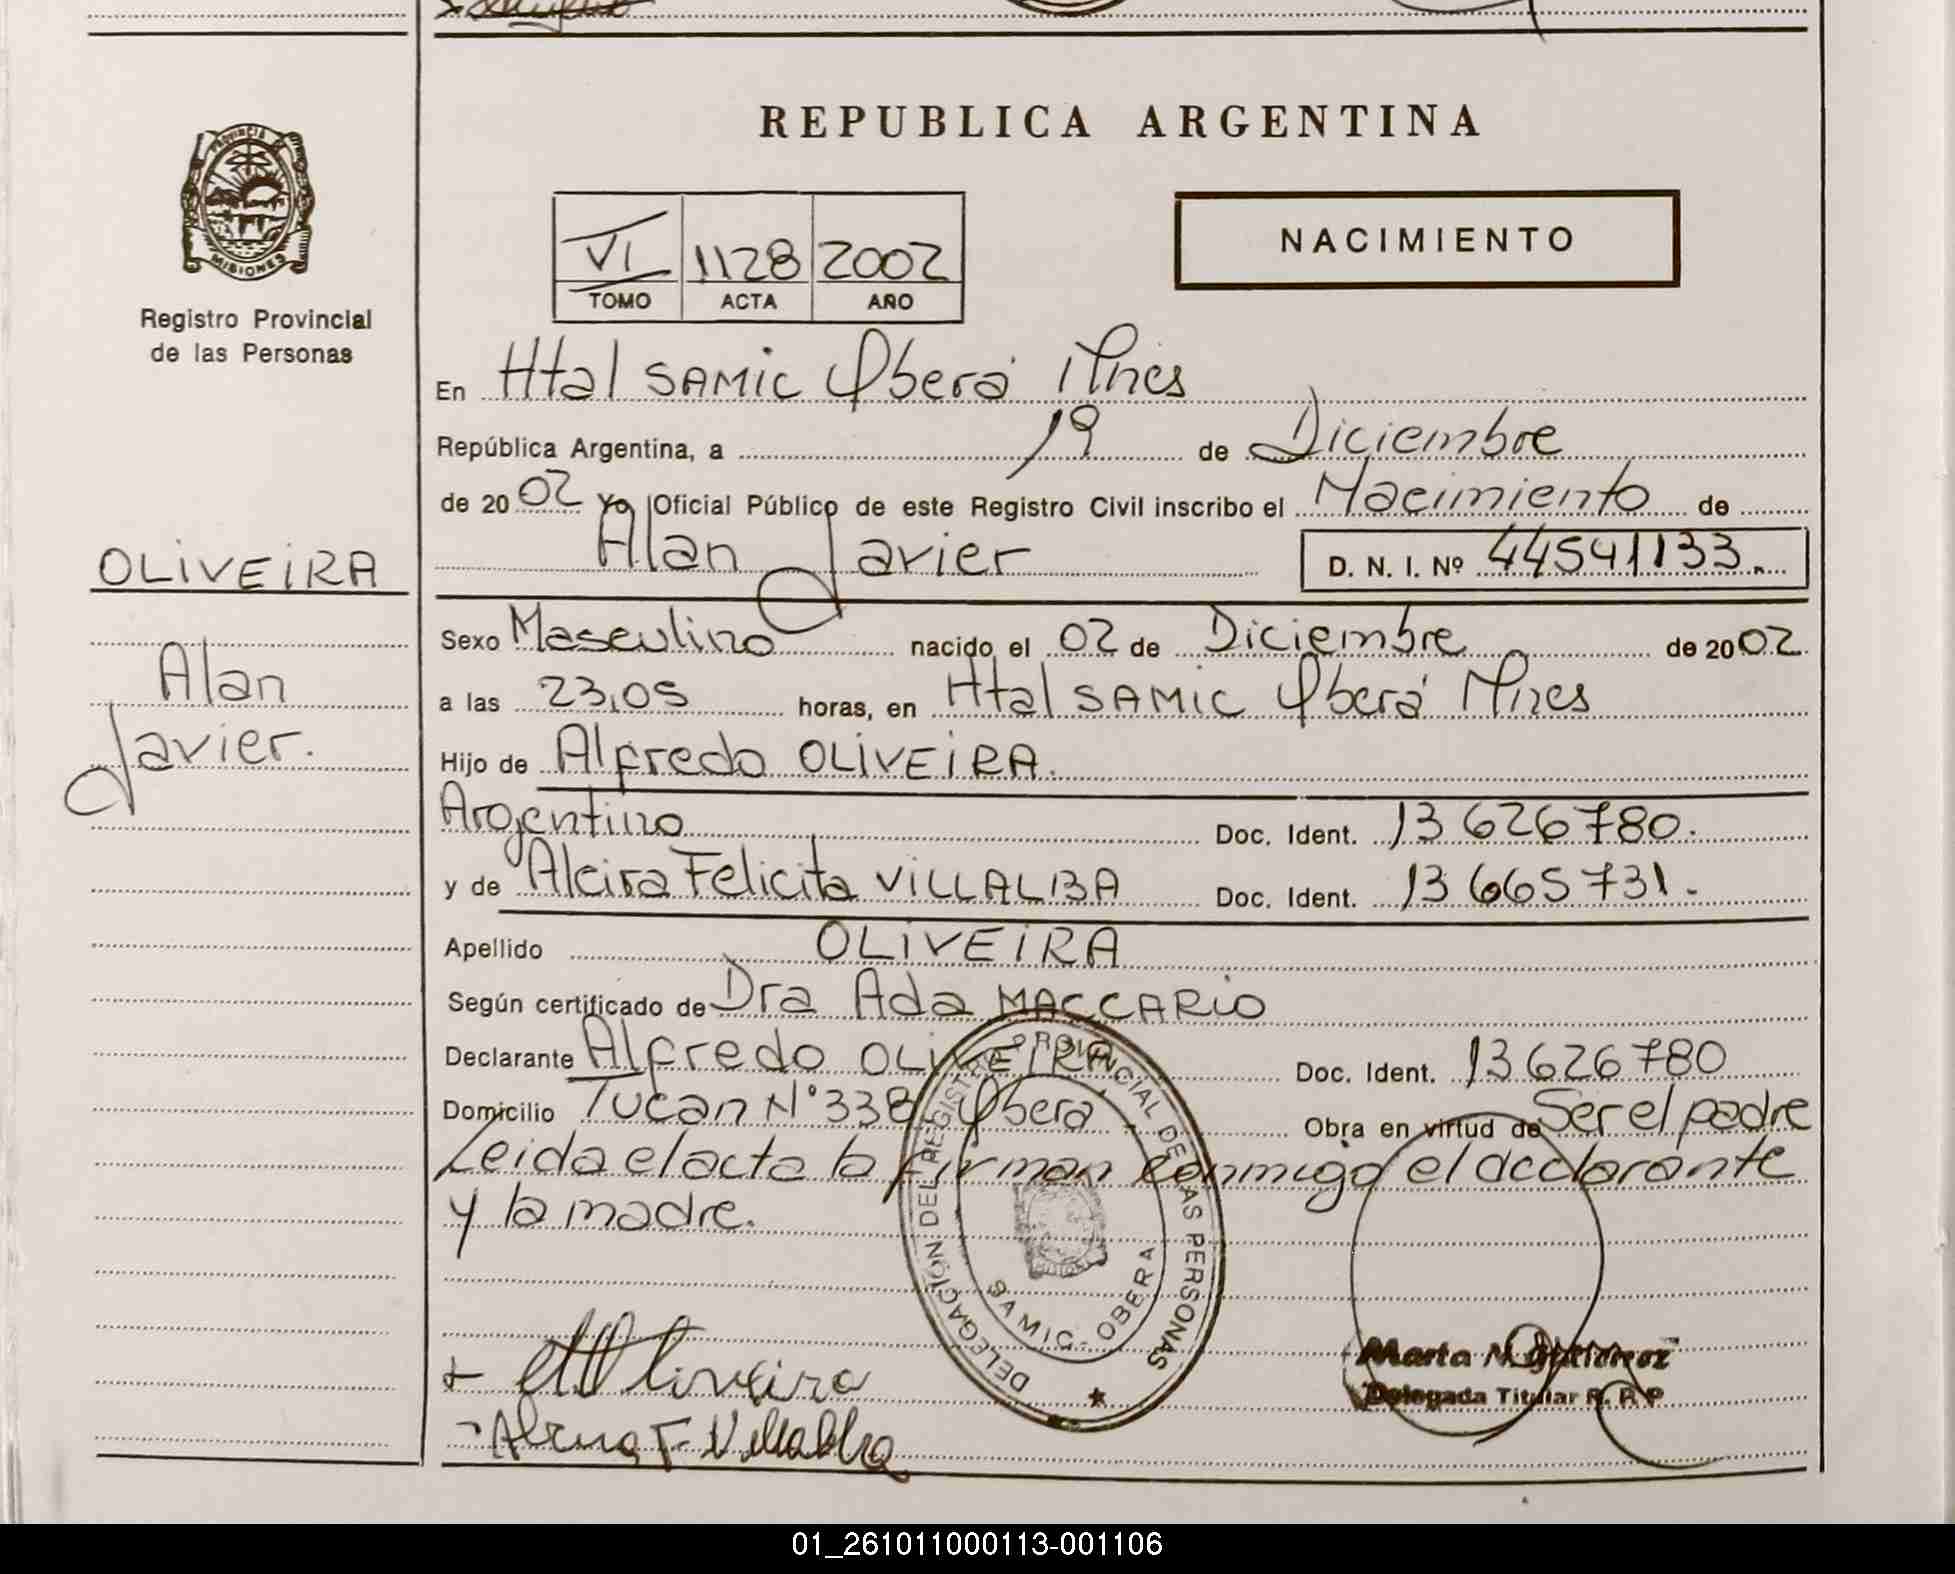 REPUBLICA ARGENTINA
PROVINCIA
MISIONES
Registro Provincial
de las Personas
VI 1128 2002
TOMO ACTA AÑO
NACIMIENTO
En Htal SAMIC Oberá Mnes
República Argentina, a 19 de Diciembre
de 2002 Yo Oficial Público de este Registro Civil inscribo el Nacimiento de
Alan Javier D. N. I. Nº 44541133.
OLIVEIRA
Alan
Javier.
Sexo Masculino nacido el 02 de Diciembre de 2002
a las 23,05 horas, en Htal SAMIC Oberá Mnes
Hijo de Alfredo OLIVEIRA.
Argentino Doc. Ident. 13 626780.
y de Alcira Felicita VILLALBA Doc. Ident. 13 665731.
Apellido OLIVEIRA
Según certificado de Dra Ada MACCARIO
Declarante Alfredo OLIVEIRA Doc. Ident. 13626780
Domicilio Tucan N°338 Obera Obra en virtud de Ser el padre
Leida el acta la firman conmigo el declarante
y la madre.
DELEGACIÓN DEL REGISTRO PROVINCIAL DE LAS PERSONAS
SAMIC - OBERA
Oliveira
Alcira F. Villalba
Marta N. Gutierrez
Delegada Titular R. P. P
01_261011000113-001106